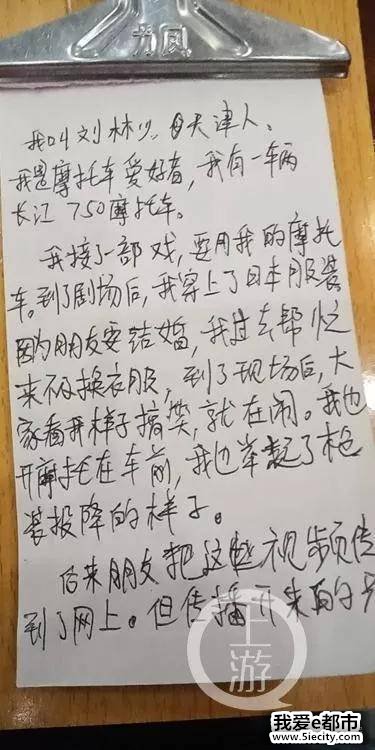 力风
我叫刘林 天津人。
我是摩托车爱好者,我有一车两
长江750摩托车。
我接了一部戏,要用我的摩托
车。到了剧场后,我穿上了日本服装
因为朋友要结婚,我过去帮忙
来不及换衣服,到了现场后,大
家看我样子搞笑,就在闹。我也
开摩托在车前,我也举起了枪
装投降的样子。
后来朋友把这些视频传
到了网上。但传播开来的
上游
我爱e都市
www.5iecity.com